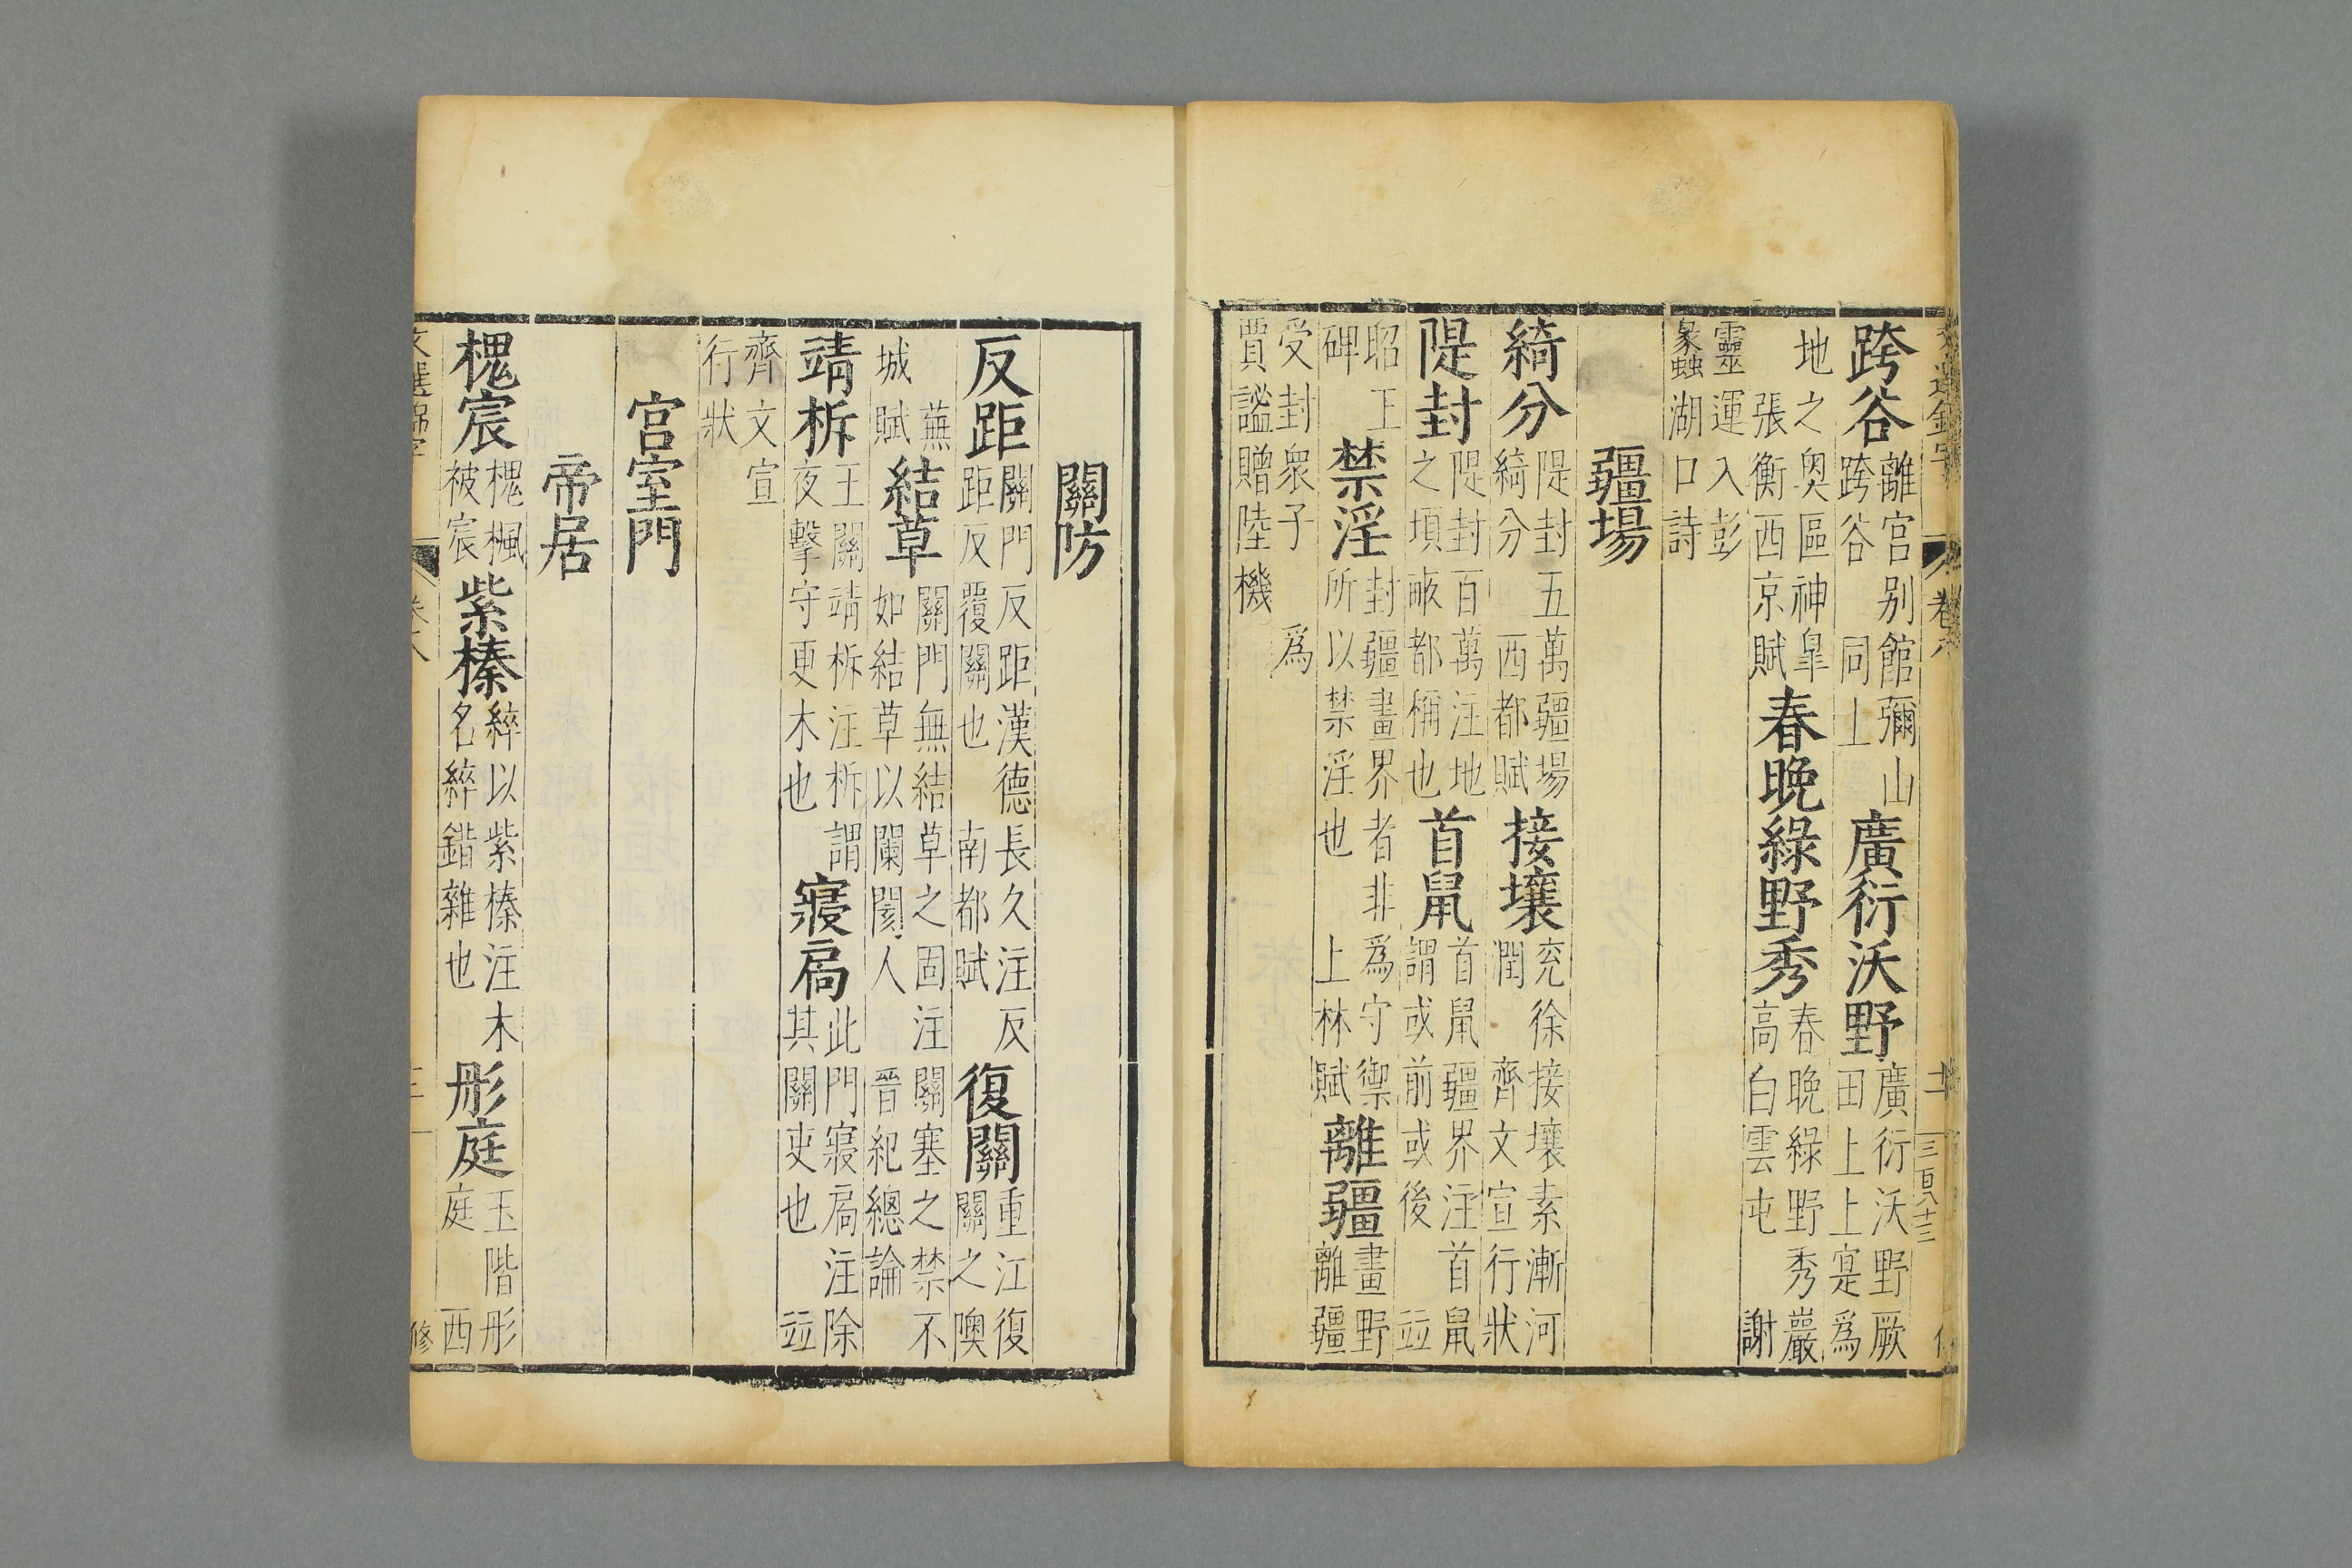 跨谷離宮别館彌山跨谷同上廣衍沃野廣衍沃野厥田上上寔爲
地之奥區神臯張衡西京賦春晚綠野秀春晚綠野秀巖高白雲屯謝
靈運入彭蠡湖口詩
疆場
綺分隄封五萬疆場綺分西都賦接壤兖徐接壤素漸河潤齊文宣行狀
隄封隄封百萬注地之塤畝都稱也首鼠首鼠疆界注首鼠謂或前或後竝
昭王碑禁淫封疆畫界者非爲守禦所以禁淫也上林賦離疆畫野離疆
受封衆子爲賈謐贈陸機
關防
反距關門反距漢德長久注反距反覆關也南都賦復關重江復關之隩
蕪城賦結草關門無結草之固注如結草以闌閡人關塞之禁不晉紀總論
靖柝王關靖柝注柝謂夜擊守更木也寢扃此門寢扃注除其關吏也竝
齊文宣行狀
宮室門
帝居
槐宸槐楓被宸紫榛綷以紫榛注木名綷錯雜也彤庭玉階彤庭西
卷八
修
三百八十三